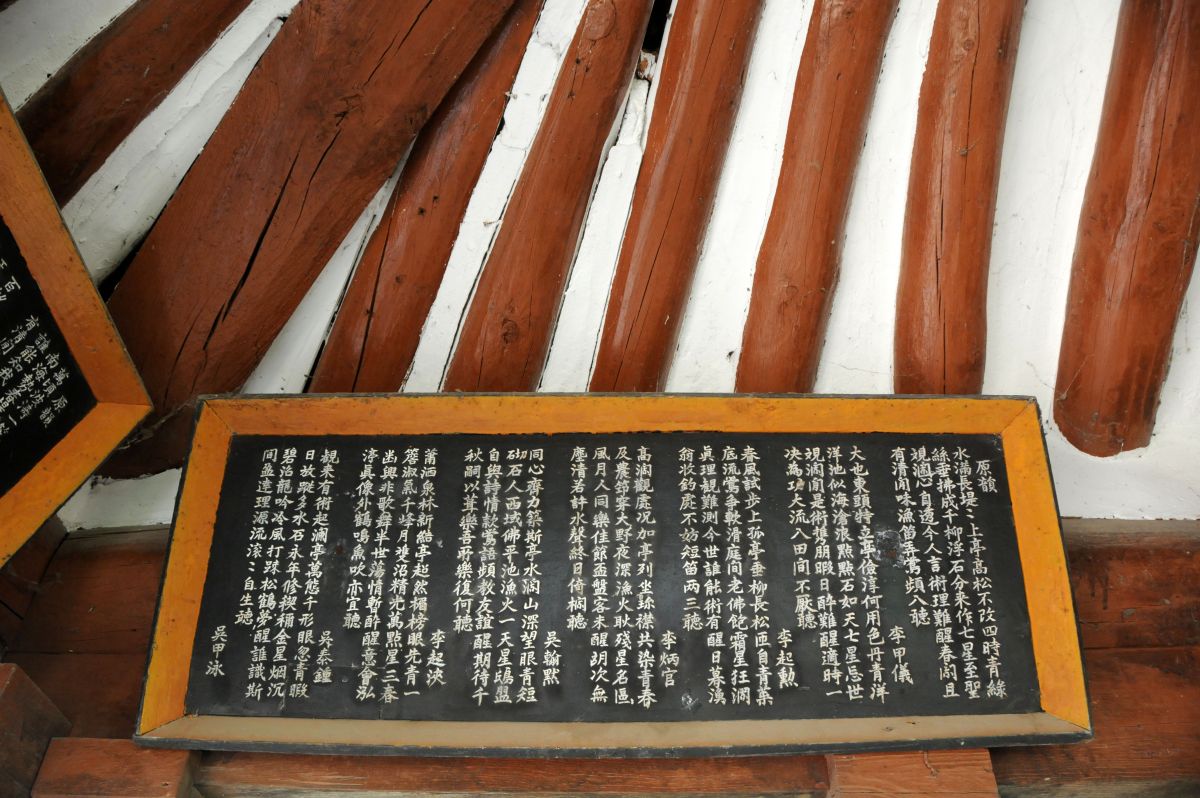 原韻
水滿長堤堤上亭高松不改四時青絲
絲垂拂成千柳浮石分來作七星至聖
現瀾心自適今人言術理難醒春閒且
有清閒味漁笛弄鳶頻入聽
李甲儀
大也東頭特立亭儉淳何用色丹青洋
洋池似海滄浪點點石如天七星忘世
現瀾閒是術舊朋暇日醉難醒適時一
決為功大流入田間不厭聽
李起勳
春風試步上孤亭垂柳長松匝自青葉
底流鶯爭軟滑庭間老佛飽霜星狂瀾
眞理觀難測今世誰能術有醒日暮漢
翁收釣處不妨短笛两三聽
李炳官
高瀾觀處况加亭列坐
襟共染青春
及農
大野夜深漁火耿殘星名區
風月人同樂佳節盃盤客未醒胡次無
塵清若許水聲終日倚欄聽
吳翰默
同心齊力築斯亭水瀾山深望眼青短
砌石人西域佛平池漁火一天星鴟盟
自與詩情款鶯語頻教友誼醒期待千
秋嗣以葺樂吾所樂復何聽
李起浹
莆洒泉林新結亭起然楣榜眼先青一
簇淑氣千峰月雙沼精光萬點星三春
幽興非歌舞半世蕩情暫醉醒意會泓
渟眞像外鶴鳴魚吹亦宜聽
吳泰鍾
觀來有術起瀾亭萬慮千形眼忽青暇
日故蹤多水石永年修稧種金星烟沉
碧沼龍吟冷風打疎松鶴夢醒誰識斯
間盈達理源流滾滾自生聽
吳甲泳